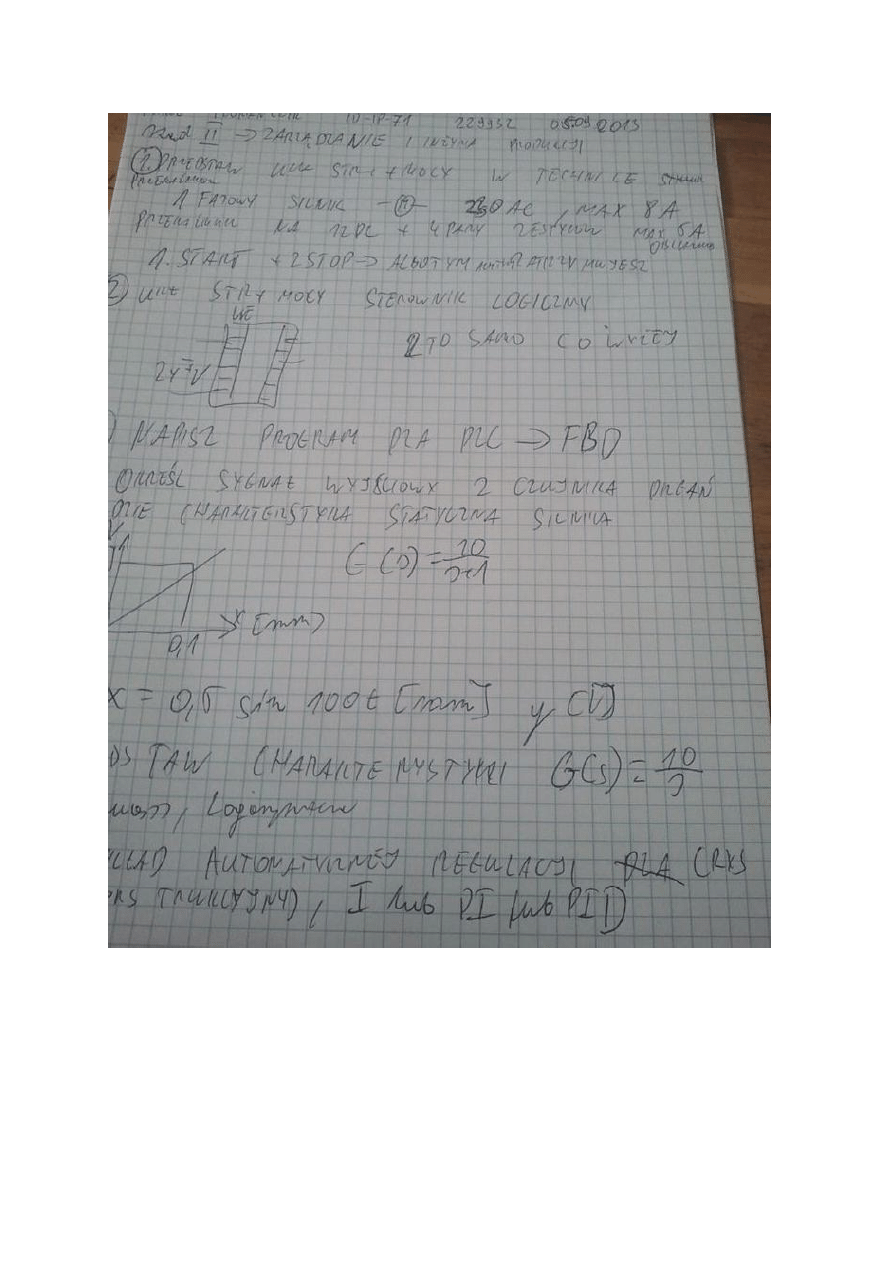 10-IP-71 229932 05.09 2013
II → ZARZĄDZANIE I INŻYN PRODUKCJI
1. PRZEDSTAW UKŁ STR + MOCY W TECHNICE
1 FAZOWY SILNIK -M- 230 AC, MAX 8A
PRZEKAŹNIKI NA 12DC + 4 PARY ZESTYKÓW MAX 5A
OBCIĄŻENIA
1. START + 2 STOP →
2) UKŁ STR MOCY STEROWNIK LOGICZNY
WE
2 TO SAMO CO WYŻEJ
24 V
) NAPISZ PROGRAM DLA PLC → FBD
OKREŚL SYGNAŁ WYJŚCIOWY Z CZUJNIKA DRGAŃ
DZIE CHARAKTERSTYKA STATYCZNA SILNIKA
G(s) = 10/s+1
x [mm]
0,1
x = 0,5 sin 100t [mm] y [V]
DSTAW CHARAKTERYSTYKI G(s) = 10/s
, Logarytmiczn
KŁAD AUTOMATYCZNEJ REGULACJI DLA (RYS
KONSTRUKCYJNY), I lub PI lub PID